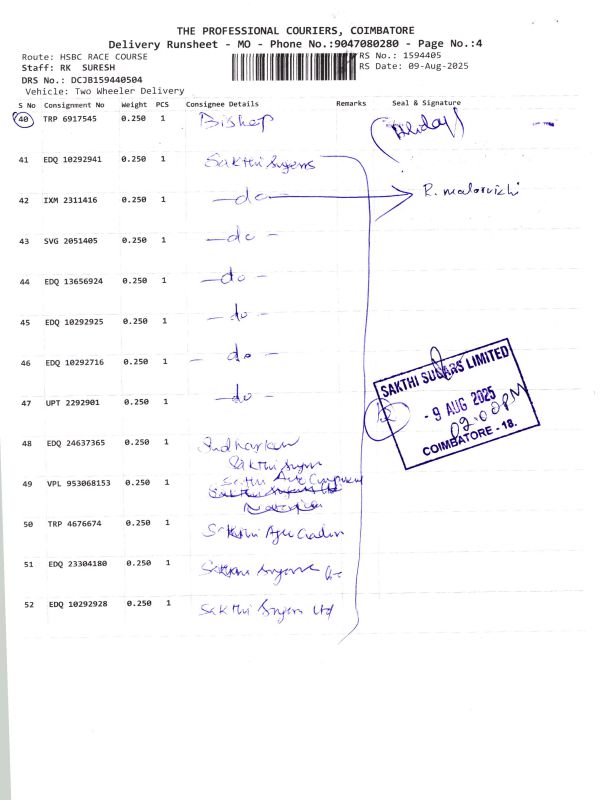 THE PROFESSIONAL COURIERS, COIMBATORE
Delivery Runsheet - MO - Phone No.:9047080280 - Page No.:4
Route: HSBC RACE COURSE
RS No.: 1594405
Staff: RK SURESH
RS Date: 09-Aug-2025
DRS No.: DCJB159440504
Vehicle: Two Wheeler Delivery
S No Consignment No Weight PCS Consignee Details Remarks Seal & Signature
40 TRP 6917545 0.250 1 Bishop
41 EDQ 10292941 0.250 1 Sakthi Sugars
42 IXM 2311416 0.250 1 -do- R. malarvizhi
43 SVG 2051405 0.250 1 -do-
44 EDQ 13656924 0.250 1 -do-
45 EDQ 10292925 0.250 1 -do-
46 EDQ 10292716 0.250 1 -do-
SAKTHI SUGARS LIMITED
- 9 AUG 2025
02:00PM
COIMBATORE - 18.
47 UPT 2292901 0.250 1 -do-
12
48 EDQ 24637365 0.250 1
Sakthi Sugars
49 VPL 953068153 0.250 1
50 TRP 4676674 0.250 1 Sakthi
51 EDQ 23304180 0.250 1
52 EDQ 10292928 0.250 1 Sakthi Sugars Ltd